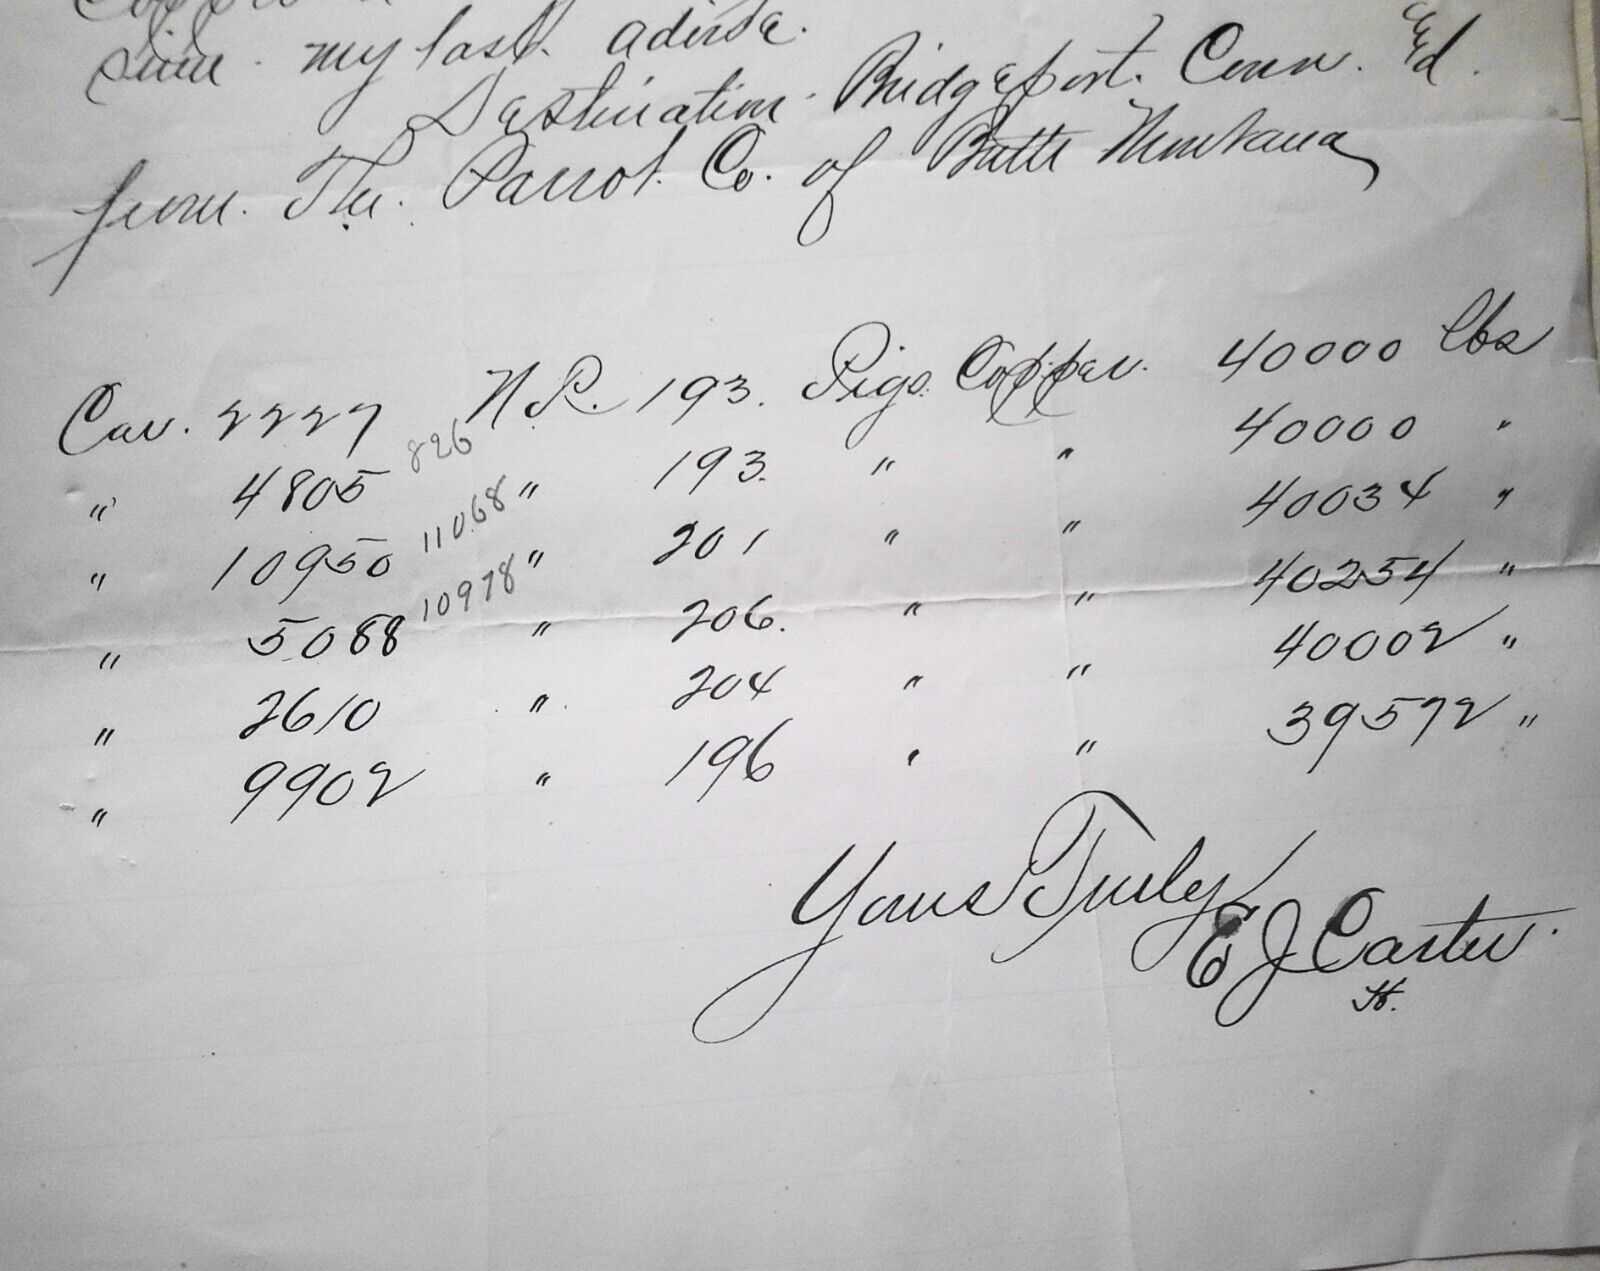 since my last advise.
Destination. Bridgeport. Conn.
from. The. Parrot. Co. of Butte Montana
Car. 2227 N.P. 193. Pigs. Copper. 40000 lbs
" 4805 826 " 193. " " 40000 "
" 10950 11068 " 201 " " 40034 "
" 5088 10978 " 206. " " 40254 "
" 2610 " 204 " " 40002 "
" 9902 " 196 " " 39572 "
Yours Truly
E J Carter.